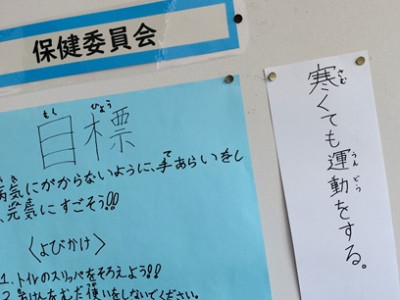 保健委員会
もく ひょう
目標
病気にかからないように、手あらいをし
、元気にすごそう!!
〈よびかけ〉
1. トイレのスリッパをそろえよう!!
2. 石けんをむだ使いをしないでください。
寒くても運動をする。